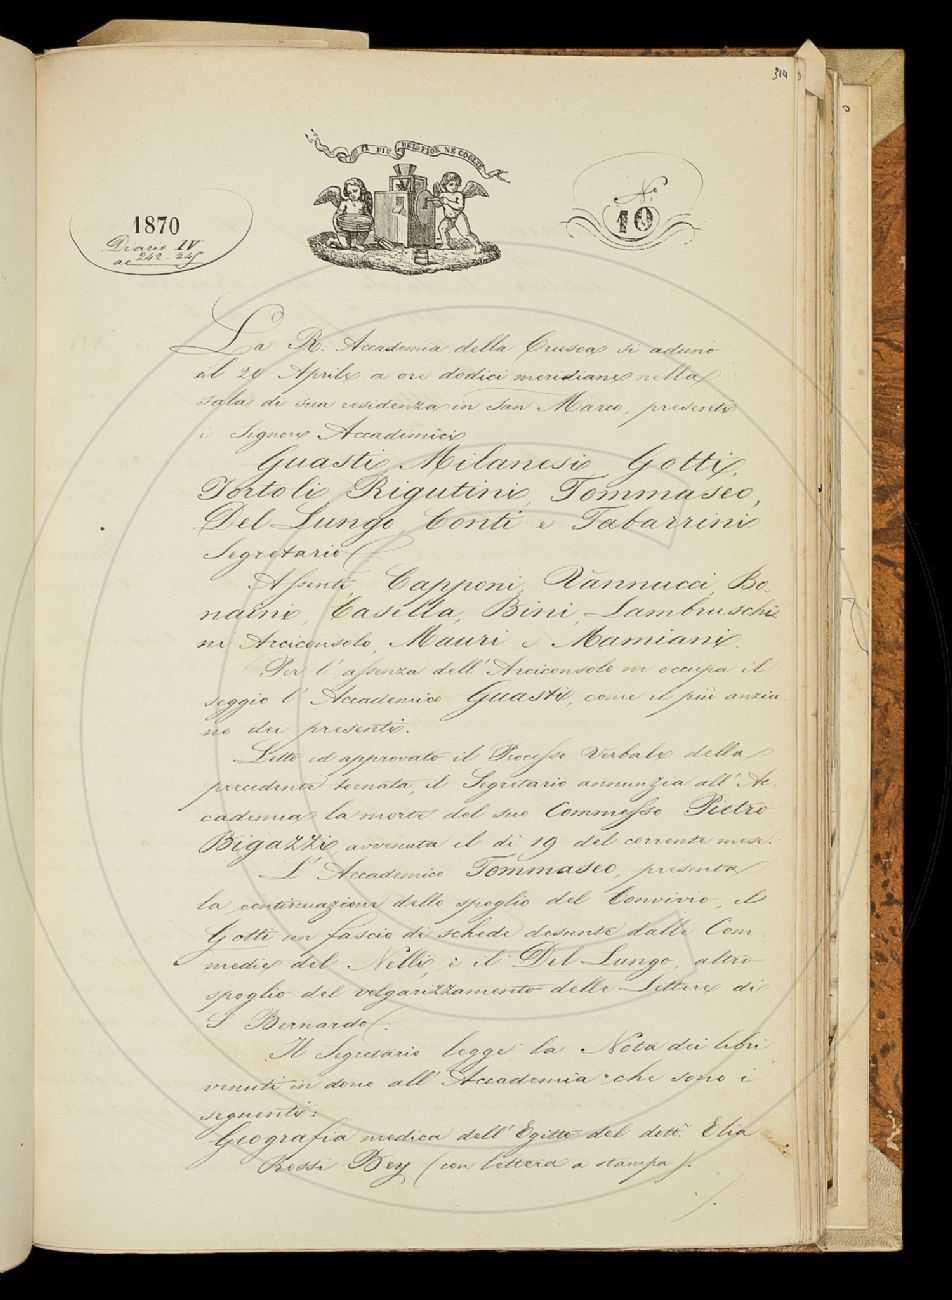 314
IL PIÙ BEL FIOR NE COGLIE
1870
Diario IV
ac 242-245
N.
10
La R. Accademia della Crusca si adunò
il 26 Aprile a ore dodici meridiane nella
sala di sua residenza in San Marco, presenti
i Signori Accademici
Guasti, Milanesi, Gotti,
Tortoli, Rigutini, Tommaseo,
Del Lungo, Conti e Tabarrini
Segretario.
Assenti, Capponi, Vannucci, Bo-
naini, Casella, Bini, Lambruschi-
ni Arciconsolo, Mauri e Mamiani.
Per l'assenza dell'Arciconsolo ne occupa il
seggio l'Accademico Guasti, come il più anzia
no dei presenti.
Letto ed approvato il Processo Verbale della
precedente tornata, il Segretario annunzia all'Ac-
cademia la morte del suo Commesso Pietro
Bigazzi, avvenuta il dì 19 del corrente mese.
L'Accademico Tommaseo, presenta
la continuazione dello spoglio del Convivio, il
Gotti un fascio di schede desunte dalle Com-
medie del Nelli, e il Del Lungo, altro
spoglio del volgarizzamento delle Lettere di
S Bernardo.
Il Segretario legge la Nota dei libri
venuti in dono all'Accademia che sono i
seguenti:
Geografia medica dell'Egitto del dott. Elia
Rossi Bey (con lettera a stampa).